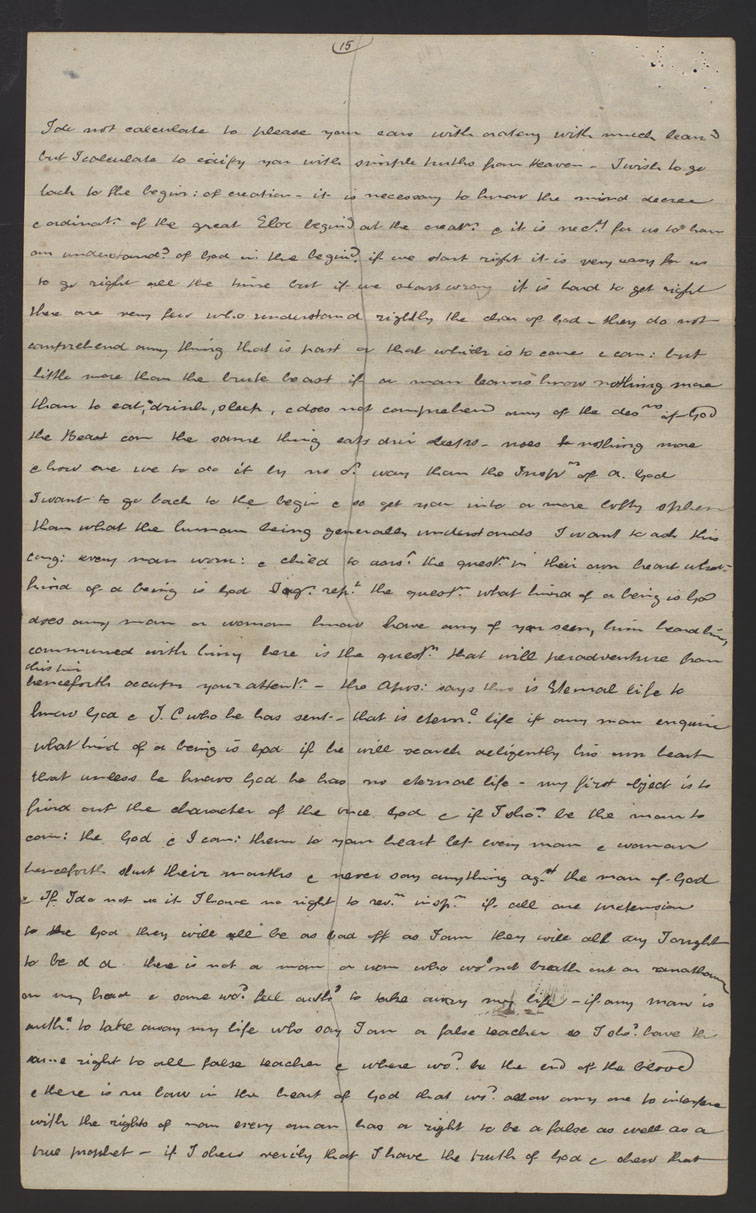 15
I do not calculate to please your ears with oratory with much learng
but I calculate to edify you with simple truths from Heaven – I wish to go
back to the begin: of creation – it is necessary to know the mind decree
& ordinatn. of the great Eloi beging at the creatn. & it is necy. for us to have
an understandg. of God in the beging. if we start right it is very easy for us
to go right all the time but if we start wrong it is hard to get right
there are very few who understand rightly the char of God – they do not
comprehend any thing that is past or that which is to come & com: but
little more than the brute beast if a man learns know nothing more
than to eat, drink, sleep, & does not comprehend any of the desns of God
the Beast com the same thing eats drin sleeps – nos nothing more
& how are we to do it by no or. way than the Inspn of A. God
I want to go back to the begin & so get you into a more lofty sphere
than what the human being generally understands I want to ask this
cong: every man wom: & child to ansr. the questn. in their own heart what
kind of a being is God I agn. rept. the questn. what kind of a being is God
does any man or woman know have any of you seen, him heard him,
communed with him, here is the questn. that will peradventure from
this tim
henceforth occupy your attentn. – the Apos: says this is Eternal life to
know God & J. C who he has sent – that is eternl. life if any man enquire
what kind of a being is God if he will search deligently his own heart
that unless he knows God he has no eternal life – my first object is to
find out the character of the true God & if I shod. be the man to
com: the God & I com: them to your heart let every man & woman
henceforth shut their mouths & never say anything agst. the man of God
& If I do not do it I have no right to revn. inspn. if all are pretension
to the God they will all be as bad off as I am they will all say I ought
to be d d. there is not a man or wom who wod. not breath out an anathema
on my head & some wod. feel authd. to take away my life – if any man is
authd. to take away my life who say I am a false teacher so I shod. have the
same right to all false teacher & where wod. be the end of the blood
& there is no law in the heart of God that wod. allow any one to interfere
with the rights of man every man has a right to be a false as well as a
true prophet – if I shew verily that I have the truth of God & shew that